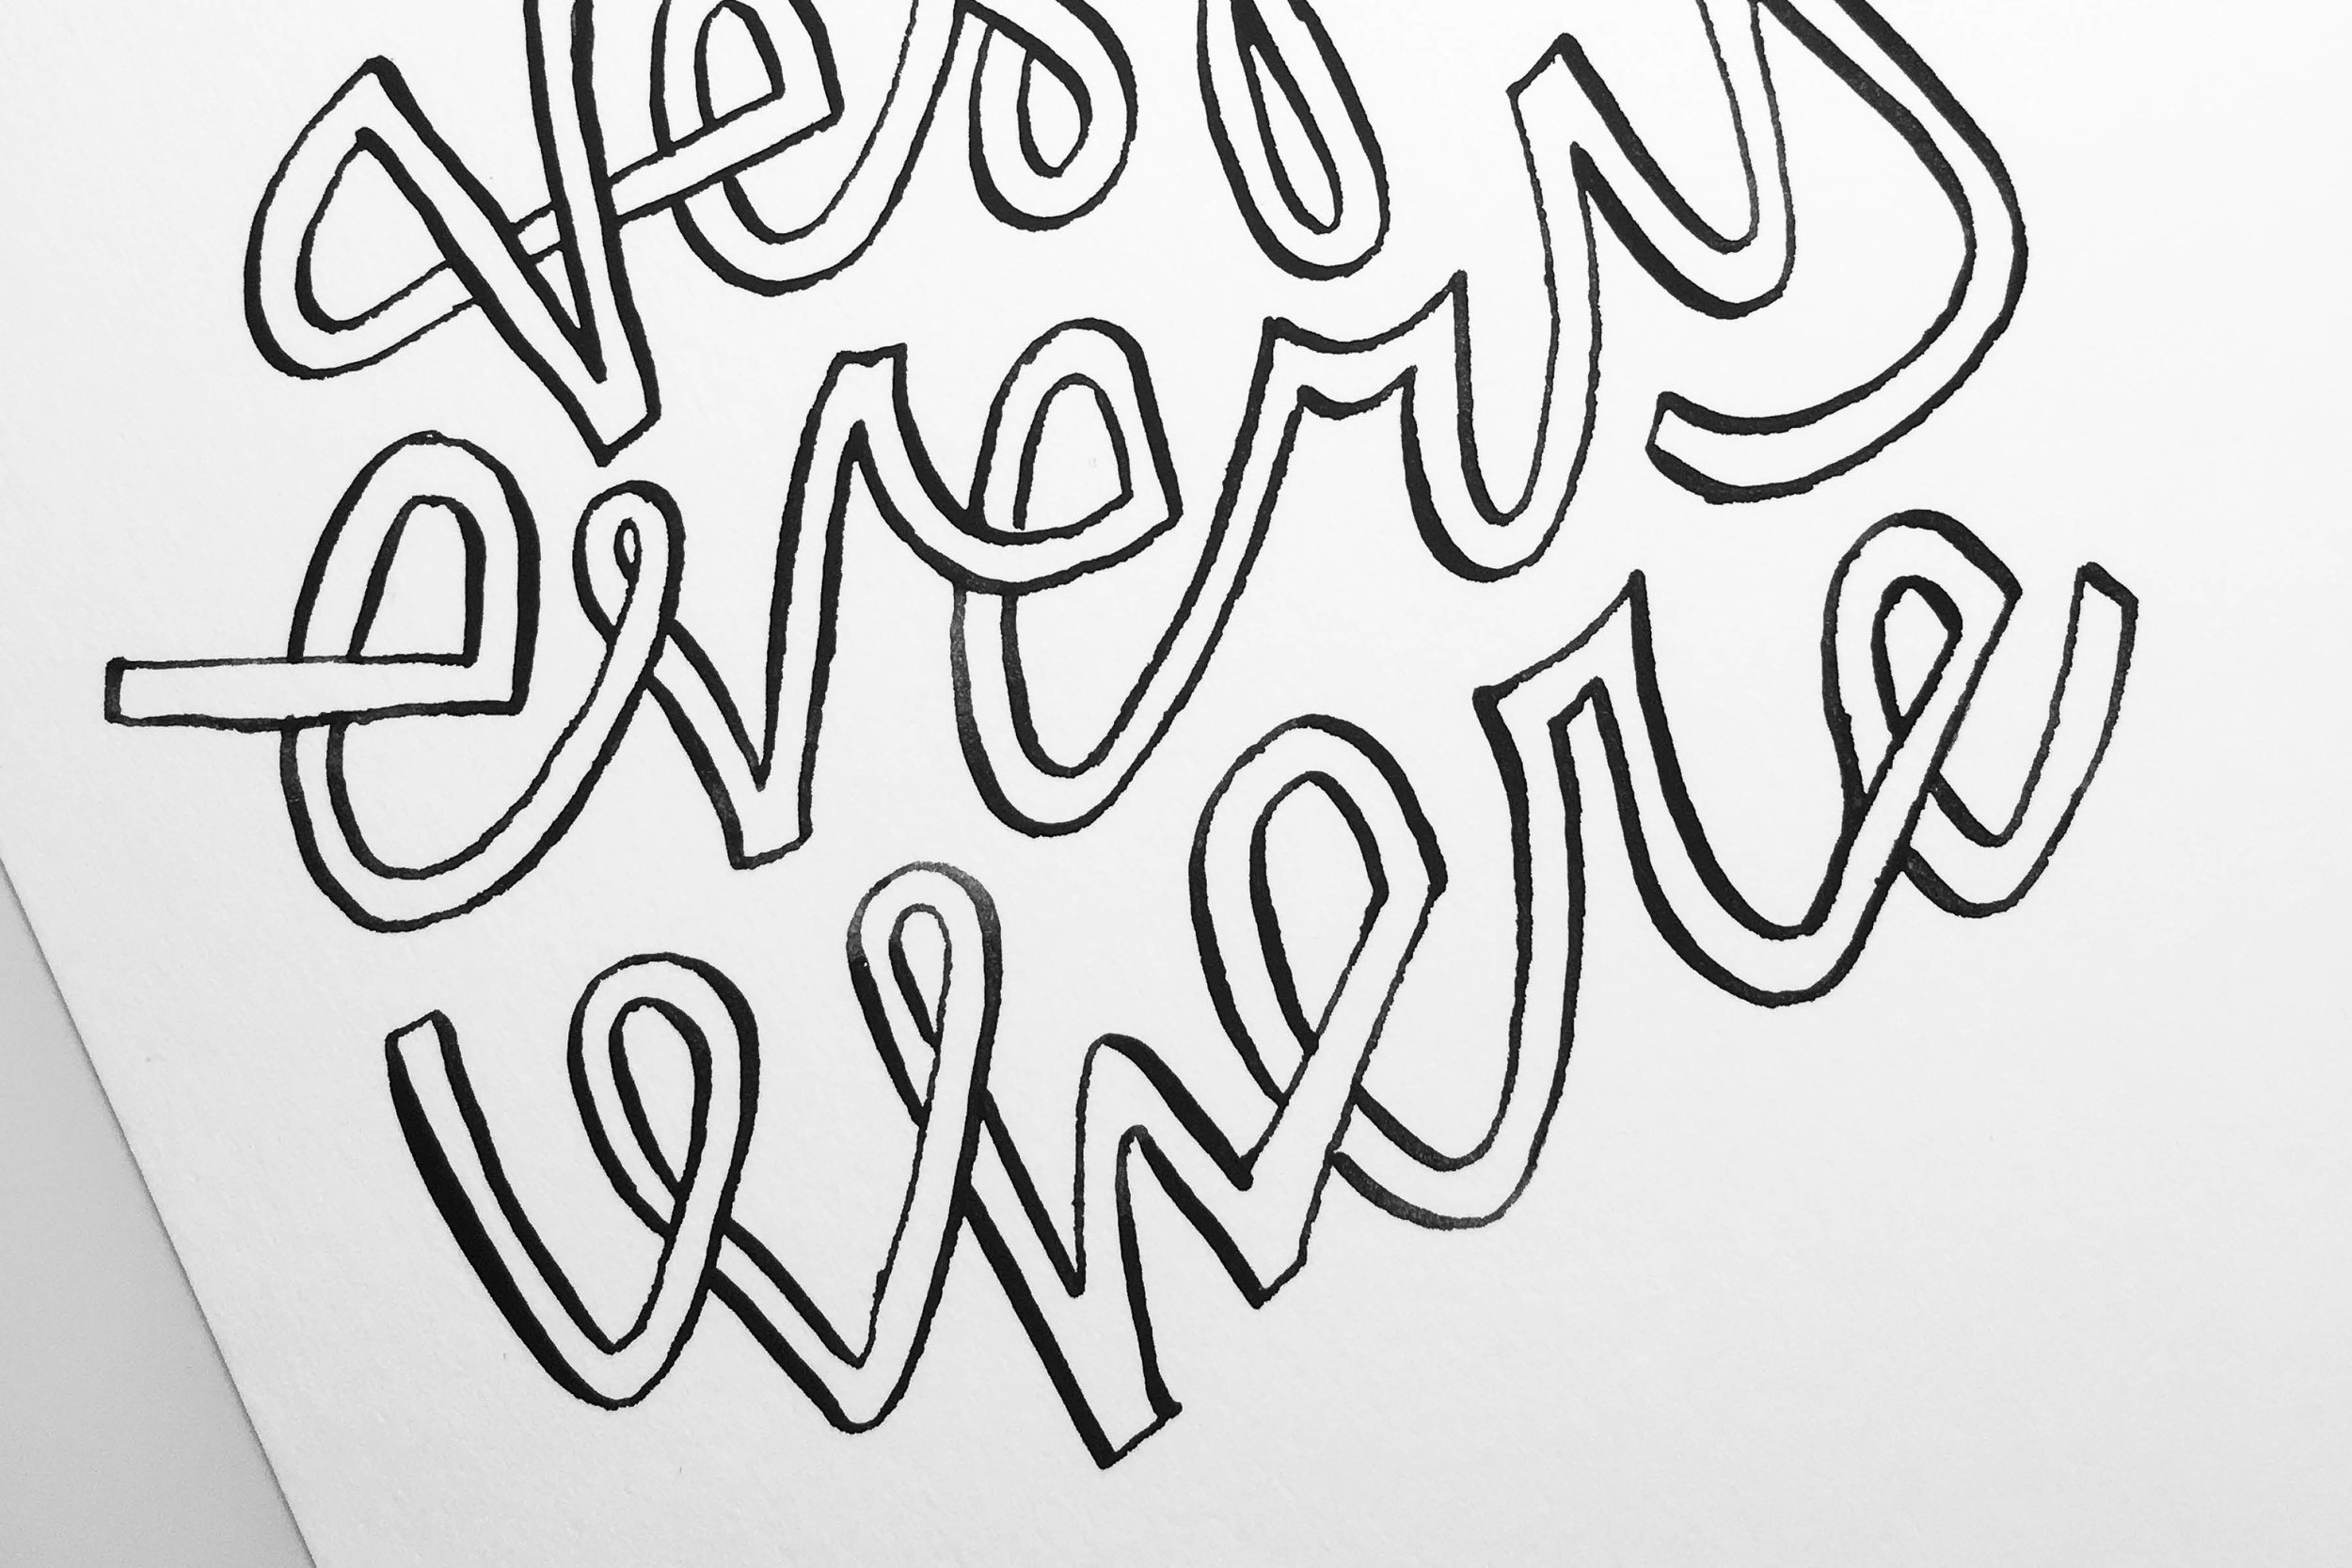 every
where